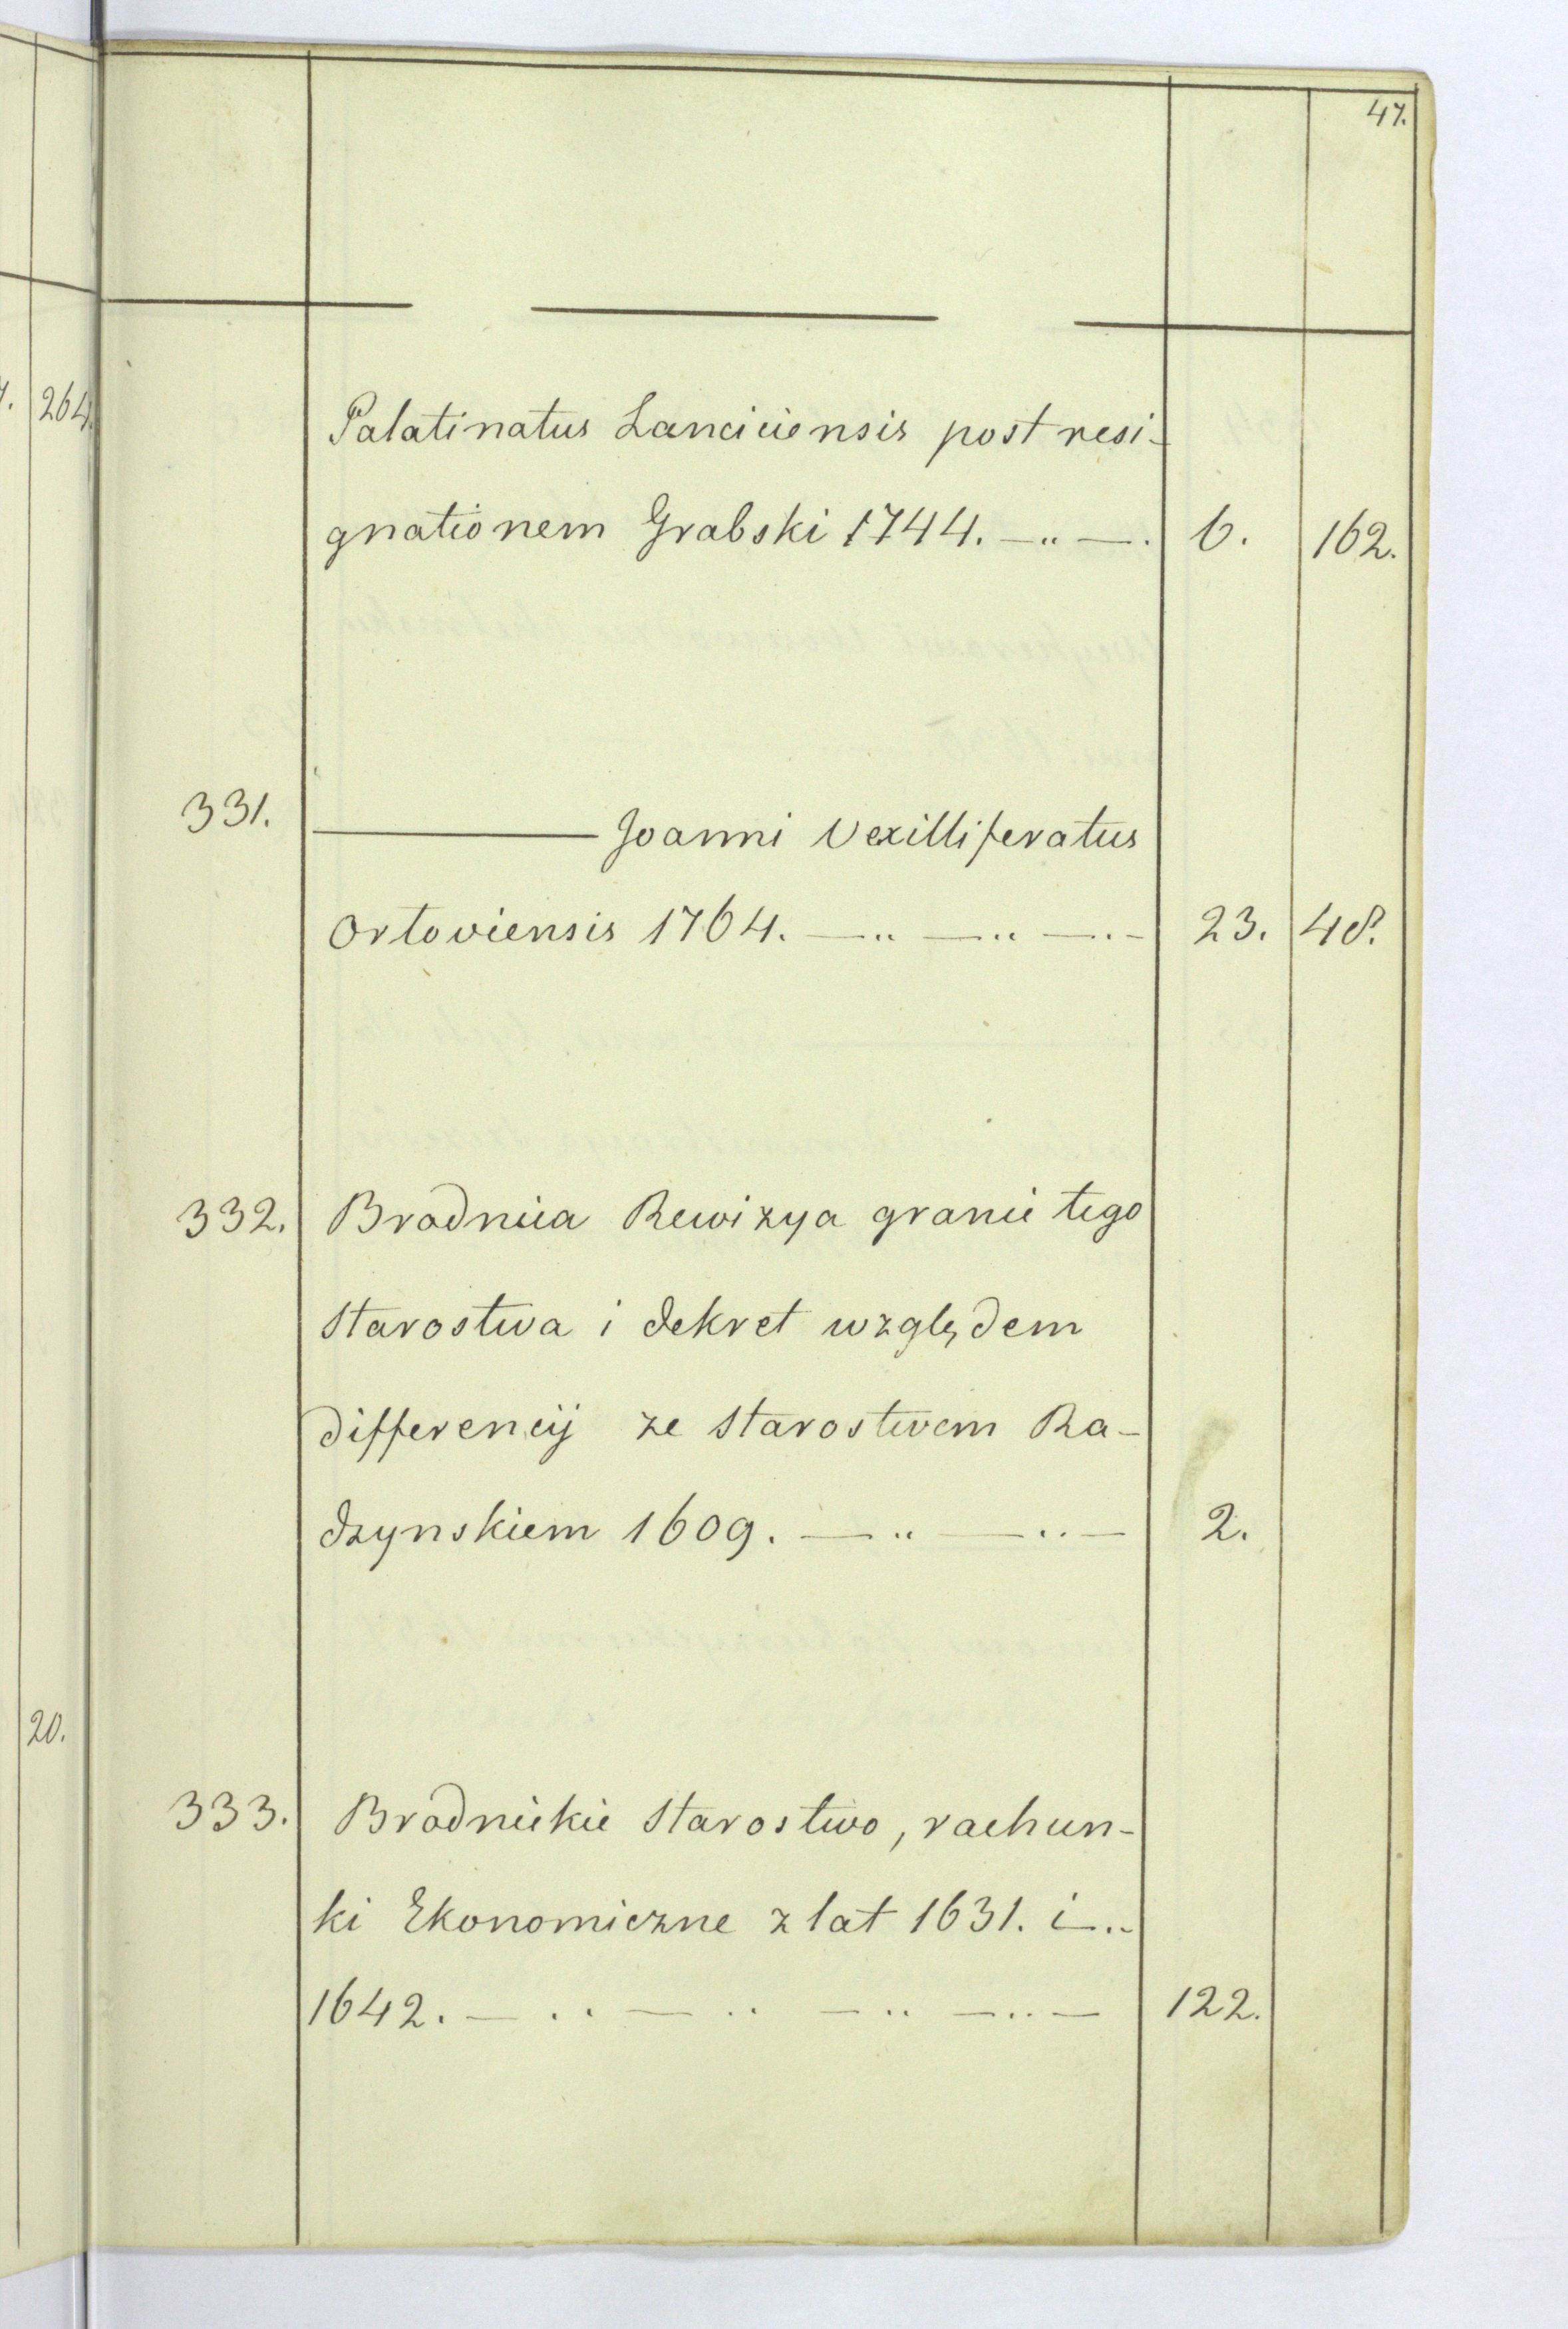 47.
264.
Palatinatus Lanciciensis post resi-
gnationem Grabski 1744. — „ — . 6. 162.
331. ——— Joanni Vexilliferatus
Orloviensis 1764. — „ — „ — „ - 23. 48.
332. Brodnica Rewizya granic tego
Starostwa i dekret względem
differencij ze Starostwem Ra-
dzynskiem 1609. — „ — „ — 2.
20.
333. Brodnickie Starostwo, rachun-
ki Ekonomiczne z lat 1631. i — „
1642. — „ — „ — „ — „ — 122.